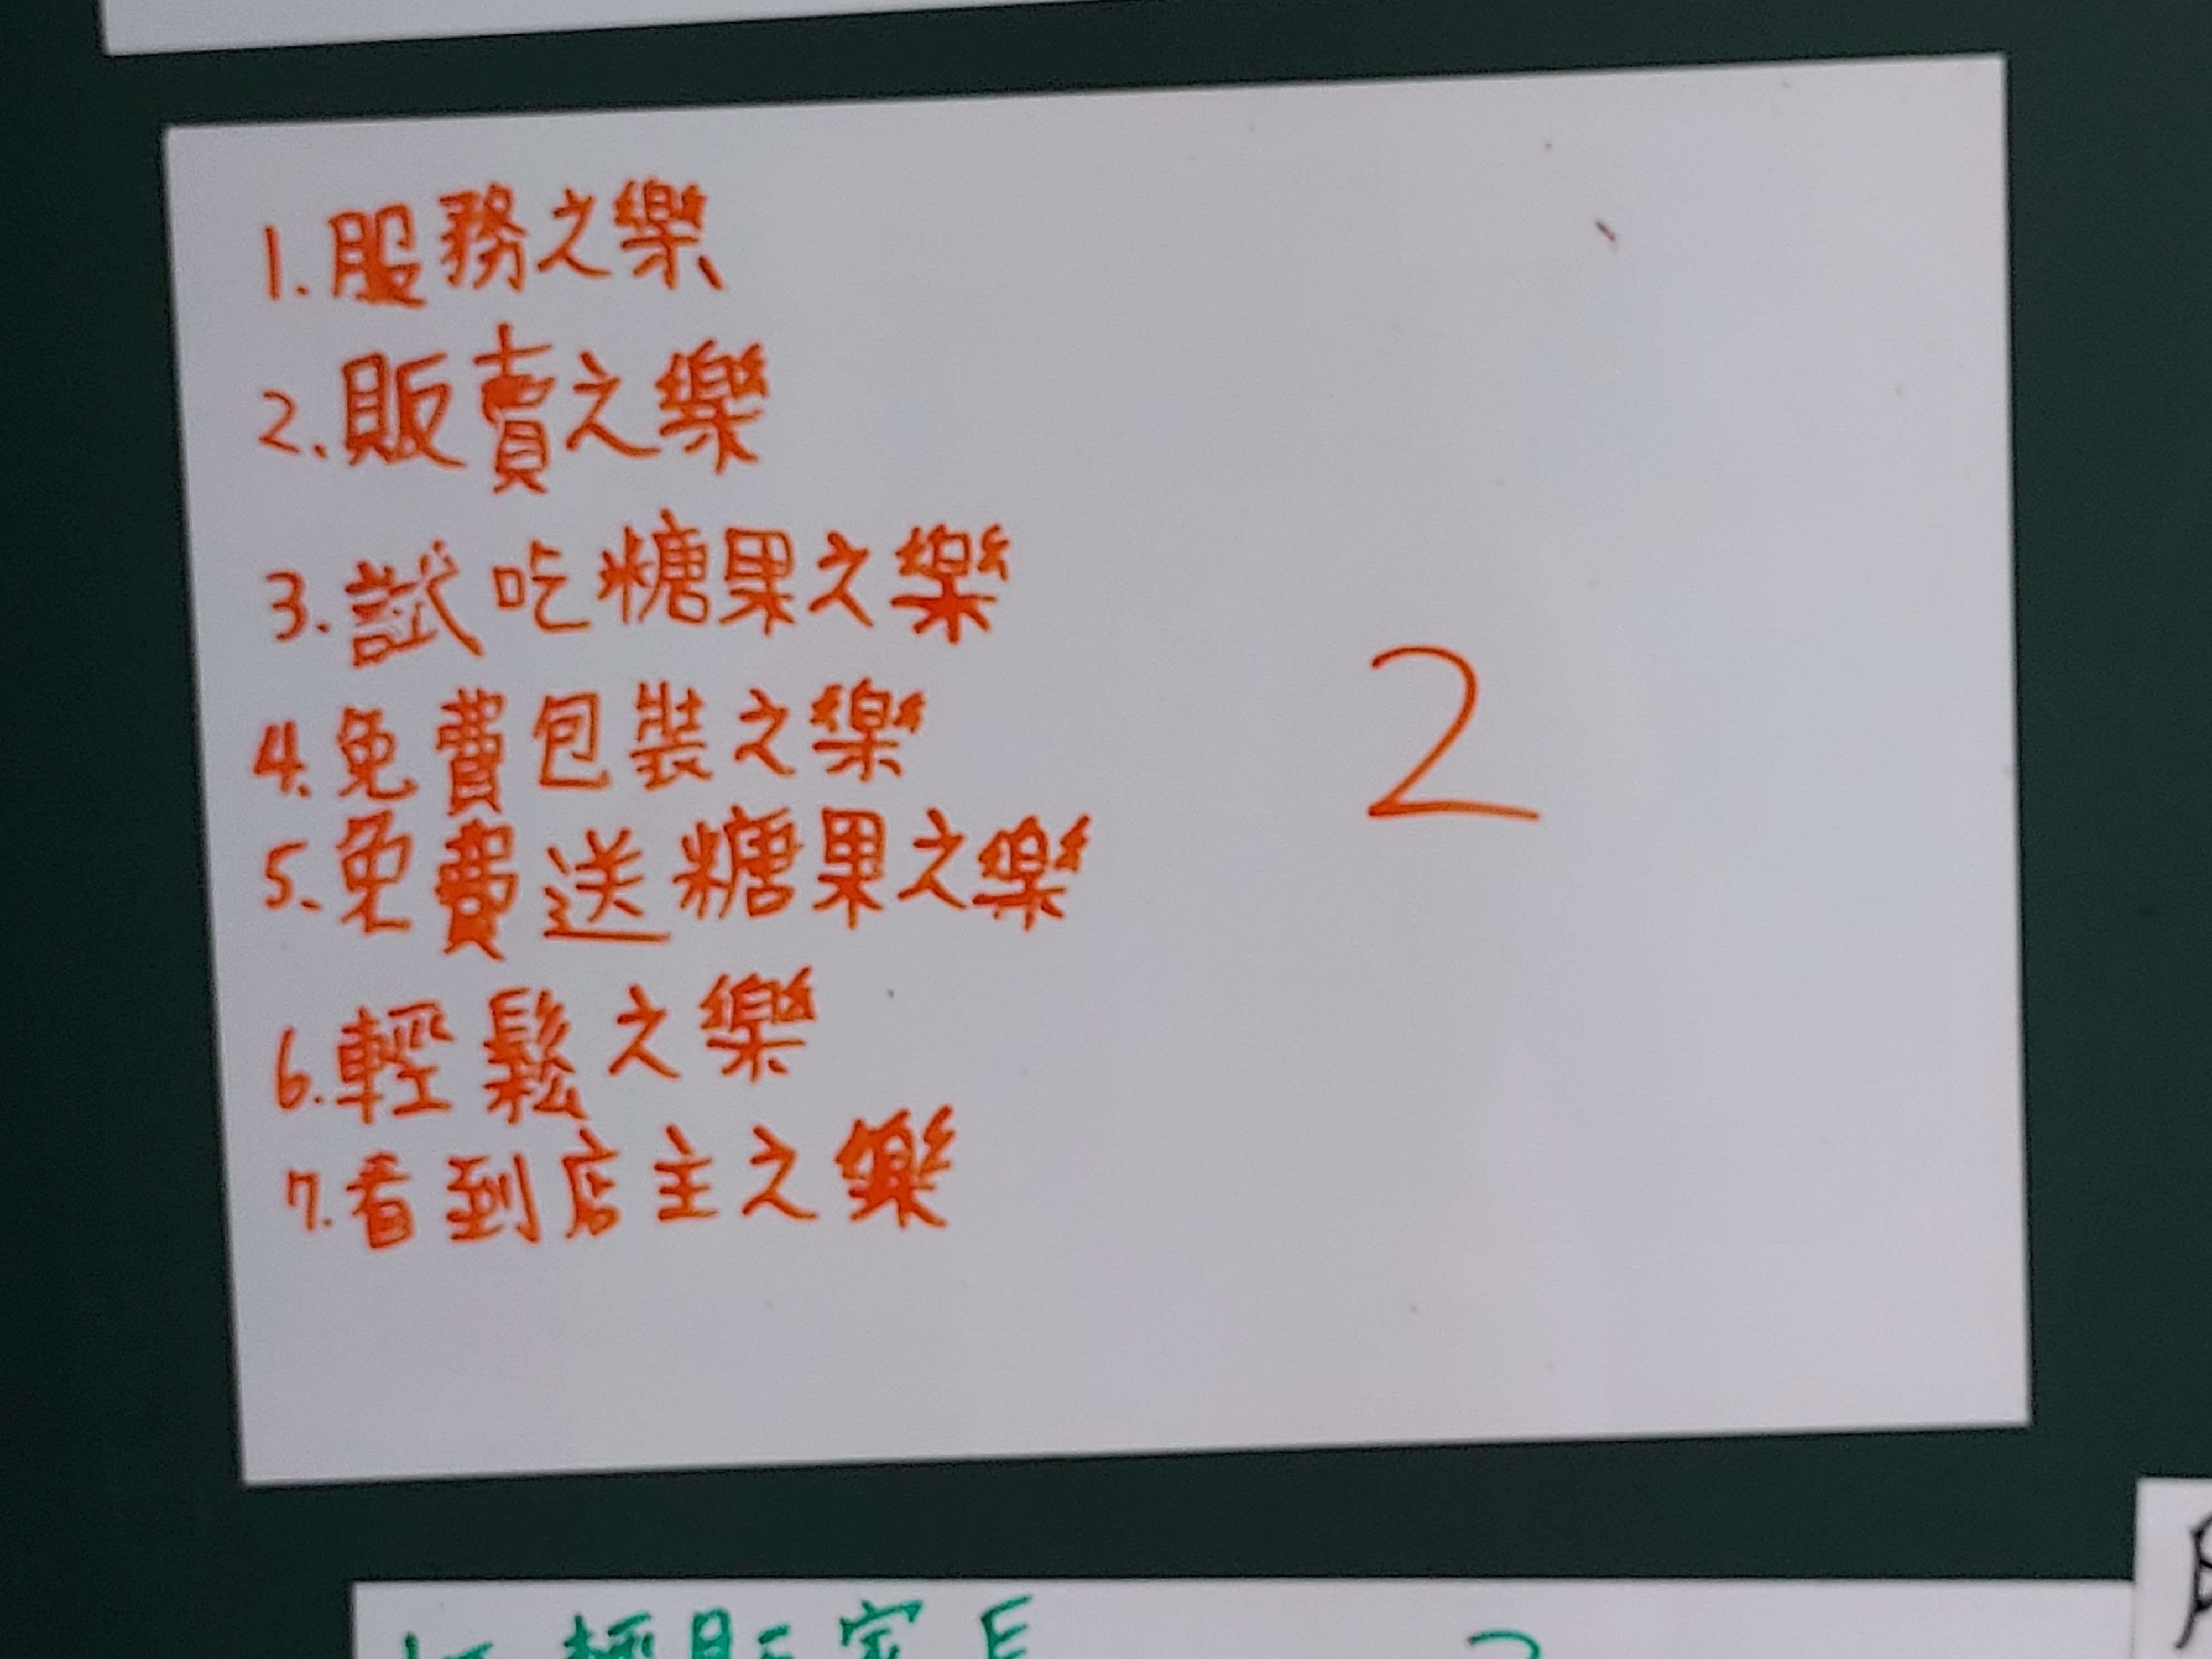 1.服務之樂
2.販賣之樂
3.試吃糖果之樂
4.免費包裝之樂
5.免費送糖果之樂
6.輕鬆之樂
7.看到店主之樂
2